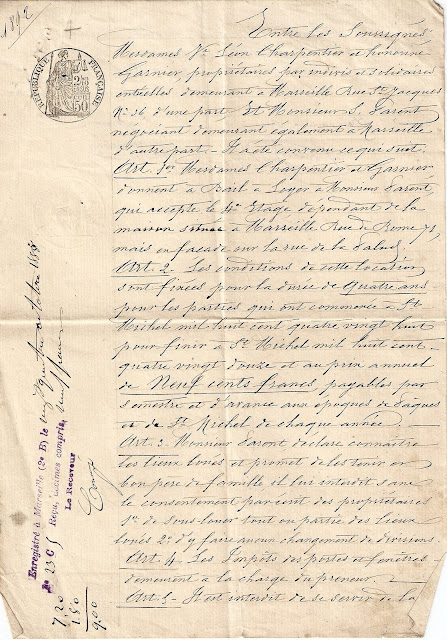 1892
RÉPUBLIQUE FRANÇAISE
Entre les Soussignés
Mesdames Vve Léon Charpentier et honorine
Garnier propriétaires par indivis et solidaires
entr'elles demeurant à Marseille Rue St Jacques
No 36 d'une part. Et Monsieur S. Darent
négociant demeurant également à Marseille
d'autre part. — Il a été convenu ce qui suit.
Art. 1er Mesdames Charpentier et Garnier
donnent à Bail à Loyer à Monsieur Darent
qui accepte le 4e étage dépendant de la
maison située à Marseille Rue de Rome 73,
mais en façade sur la rue de la Palud.
Art. 2. Les conditions de cette location
sont fixées pour la durée de Quatre ans
pour les parties qui ont commencé à St
Michel mil huit cent quatre vingt huit
pour finir à St Michel mil huit cent
quatre vingt douze et au prix annuel
de Neuf cents francs payables par
semestre et d'avance aux époques de Pâques
et de St Michel de chaque année.
Art. 3. Monsieur Darent déclare connaître
les lieux loués et promet de les tenir en
bon père de famille il lui interdit sans
le consentement par écrit des propriétaires
1o de sous-louer tout ou partie des lieux
loués 2o d'y faire aucun changement de divisions.
Art. 4. Les Impôts des portes et fenêtres
demeurent à la charge du preneur. —
Art. 5. Il est interdit de se servir de la
Enregistré à Marseille (2e B) le vingt quatre octobre 1888
No 23 C 5
Reçu, décimes compris, neuf francs
Le Receveur
7,20
1 80
9,00